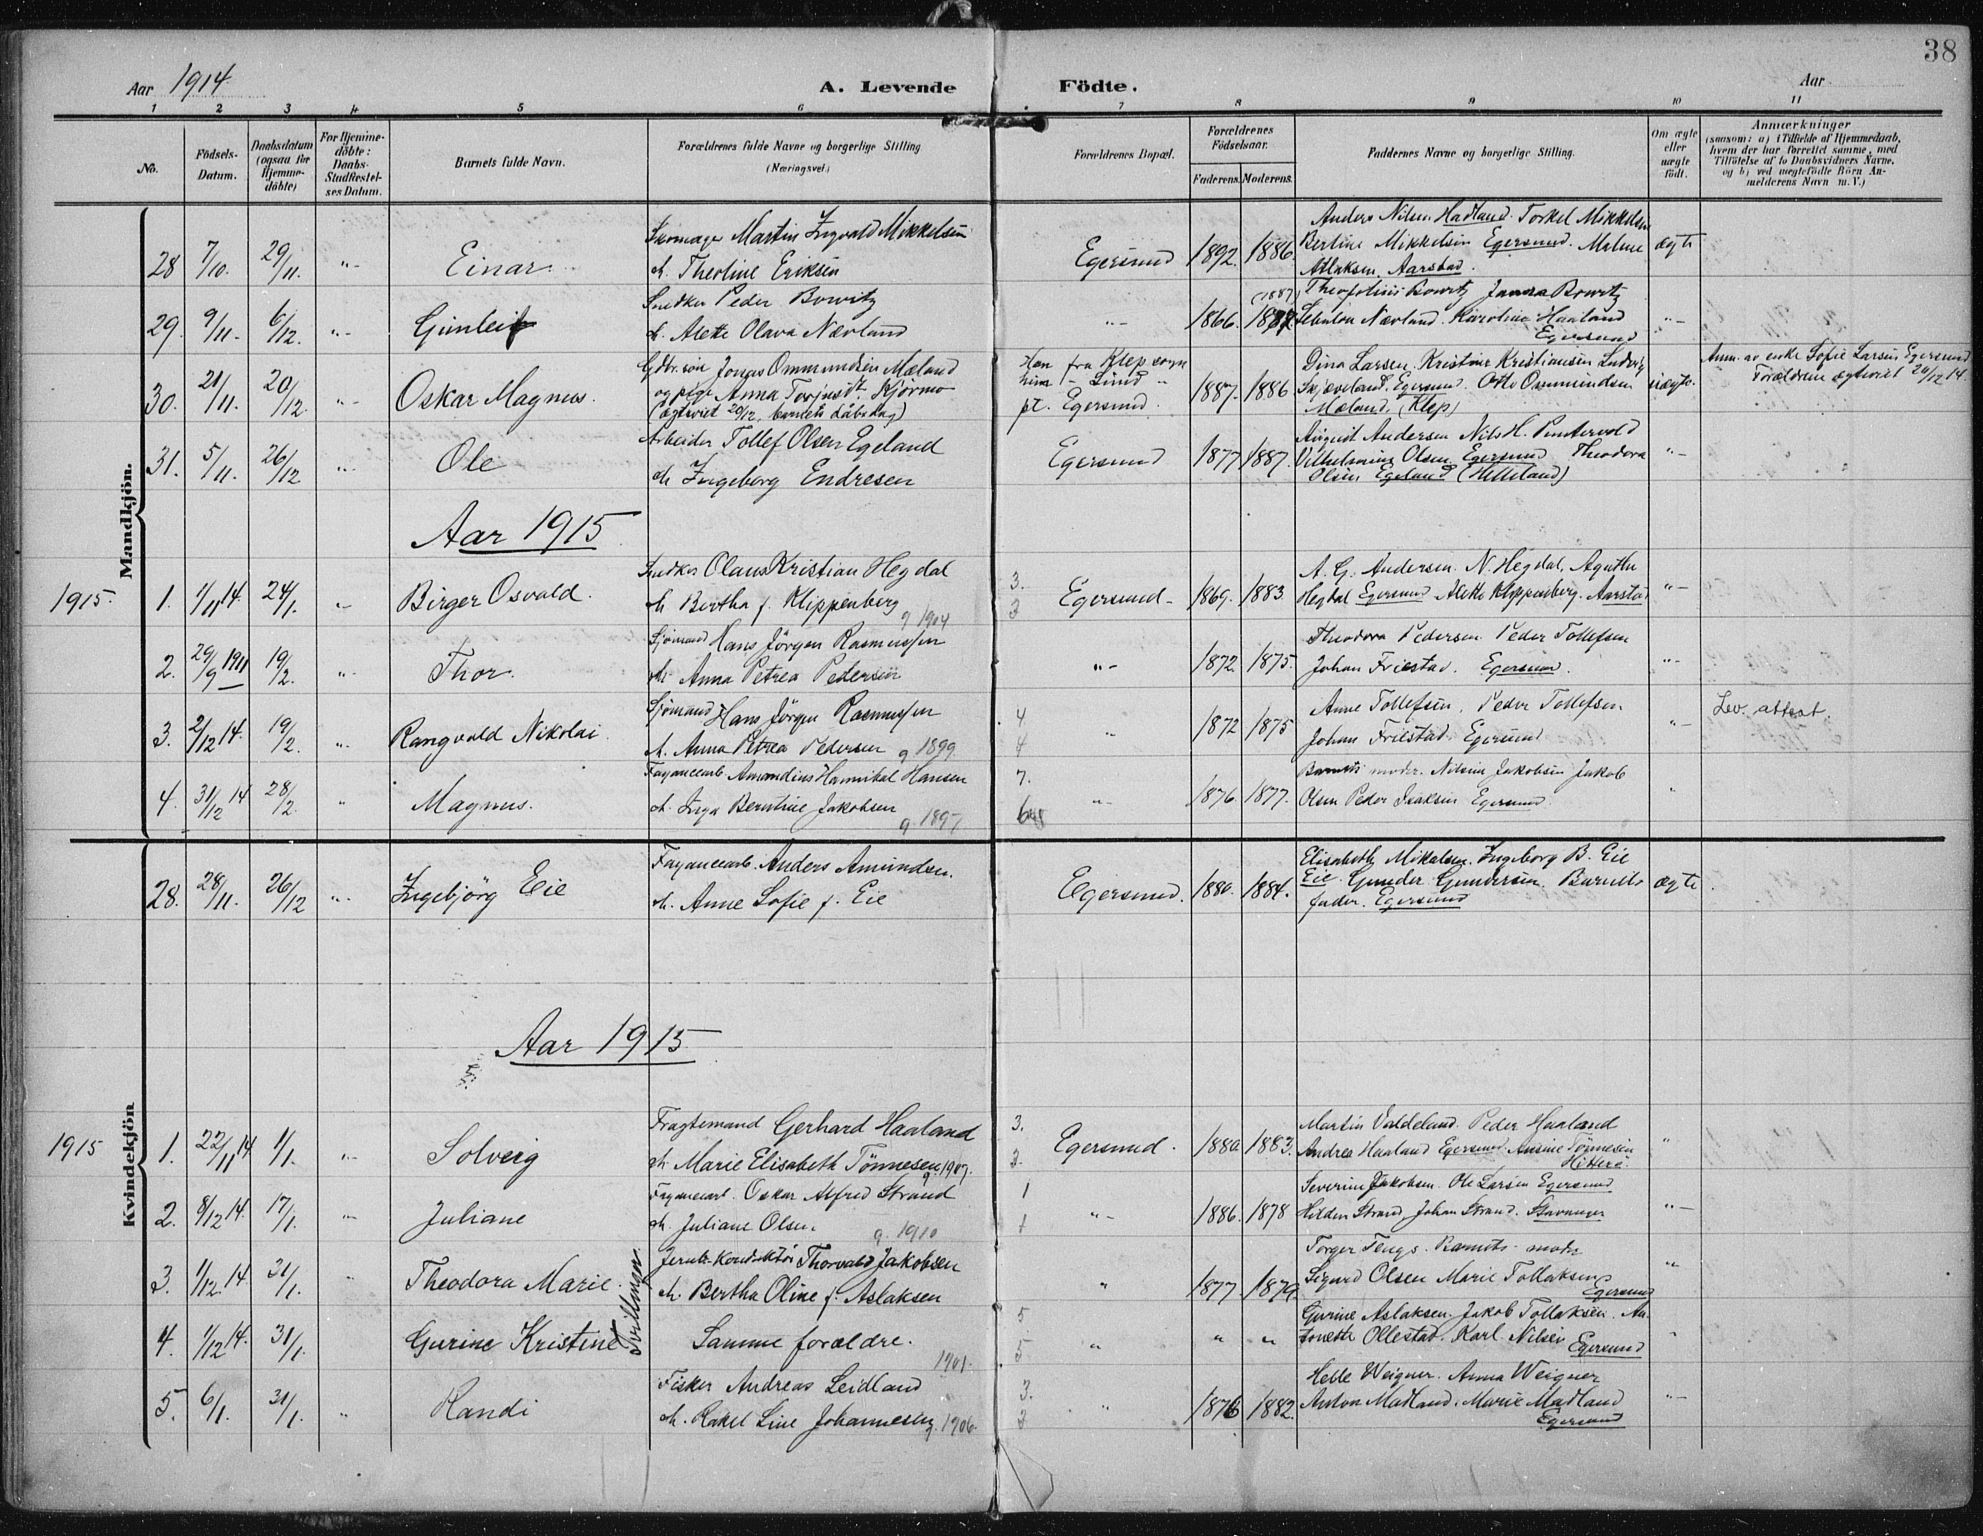 38
Aar 1914. A. Levende Födte. Aar
1 2 3 4 5 6 7 8 9 10 11
No.
Födsels-Datum.
Daabsdatum (ogsaa for Hjemme-döbte)
For Hjemme-döbte: Daabs-Stadfæstel-ses Datum.
Barnets fulde Navn.
Forældrenes fulde Navne og borgerlige Stilling
(Næringsvei.)
Forældrenes Bopæl.
Forældrenes Födselsaar.
Faderens. Moderens.
Faddernes Navne og borgerlige Stilling.
Om ægte eller uægte födt.
Anmærkninger
(saasom: a) i Tilfælde af Hjemmedaab,
hvem der har forrettet samme, med
Tilföielse af to Daabsvidners Navne,
og b) ved uægtefödte Börn An-
melderens Navn m. V.)
Mandkjön.
Skomager Martin Ingvald Mikkelsen Anders Nilsen Hadland. Torkel Mikkelsen
28 7/10. 29/11. "- Einar. Egersund 1892. 1886. Bertine Mikkelsen Egersund. Malene ægte
h. Theoline Eriksen Aslaksen. Aarstad.
Snedker Peder Bowitz (1887) Theofolius Bowitz Janna Bowitz
29. 9/11. 6/12. "- Gunleif "- 1866. 1887. Nævland. Karoline Haaland "-
h. Alette Olava Nævland Egersund
Gdbr. søn Jonas Ommundsen Mæland Han fra Klep sogn Dina Larsen, Kristine Kristiansen Ludvig Anm. av enke Sofie Larsen Egersund
30. 21/11. 20/12. "- Oskar Magnus. og pige Anna Torjusdt. Hjørmo hun - Lund " 1887. 1886 Skjeveland Egersund. Otto Ommundsen uægte. Forældrene ægteviet 20/12 14.
(ægteviet 20/12, barnets dåbsdag) pt. Egersund. Mæland. (Klep)
Arbeider Tollef Olsen Egeland August Andersen Nils H. Puntervold
31. 5/11. 26/12 "- Ole Egersund 1877 1887. Vilhelmine Olsen Egersund Theodora "-
h. Ingeborg Endresen Olsen Egeland (Helleland)
Aar 1915
Snedker Olaus Kristian Hegdal 3. A. G. Andersen. N. Hegdal, Agathe
1915. 1. 1/11 14. 24/1. "- Birger Osvald. Egersund - 1869. 1883. Hegdal Egersund Alette Klippenberg. Aarstad "-
h. Bertha f. Klippenberg g 1904 3
Sjømand Hans Jörgen Rasmussen Theodora Pedersen Peder Tollefsen
2. 29/9 1911 19/2. "- Thor. "- 1872. 1875. Johan Friestad. Egersund. "-
h. Anna Petrea Pedersen
Sjømand Hans Jörgen Rasmussen 4 Anne Tollefsen. Peder Tollefsen Lev. attest.
3. 2/12 14. 19/2. "- Rangvald Nikolai. " 1872 1875 Johan Friestad. Egersund "-
h. Anna Petrea Pedersen g 1899 4
Fayancearb. Amandius Hannibal Hansen 7. Barnets moder. Nilsine Jakobsen Jakob
4. 31/12 14 28/2. " Magnus. "- 1876. 1877. Olsen Peder Isaksen Egersund. "
h. Inga Berntine Jakobsen g. 1897 6
Kvindekjön
Fayancearb. Anders Amundsen. Elisabeth Mikalsen. Ingeborg B. Eie
28. 28/11. 26/12 "- Ingebjörg Eie Egersund. 1880. 1884. Eie. Gunder Gundersen. Barnets ægte.
h. Anne Sofie f. Eie fader. Egersund
Aar 1915
Fragtemand Gerhard Haaland 3. Martin Valdeland. Peder Haaland
1915 1. 22/11 14 1/1. "- Solveig Egersund. 1880. 1883. Andrea Haaland Egersund Ansine Tönnesen "
h. Marie Elisabeth Tönnesen g 1907. 3. Hitterö.
Fayancearb. Oskar Alfred Strand 1 Severine Jakobsen. Ole Larsen Egersund
2. 8/12 14. 17/1. "- Juliane "- 1886. 1878 Strand Johan Strand. Stavanger "-
h. Juliane Olsen. g. 1910 1
Jernb. Konduktör Thorvald Jakobsen Torger Tengs. Barnets moder
3. 1/12. 14 31/1. " Theodora Marie. Tvillinger. " 1877. 1879. Sigurd Olsen Marie Tollaksen Egersund "
h. Bertha Oline f. Aslaksen
5 Gurine Aslaksen. Jakob Tollaksen. An-
4. 1/12 14. 31/1. Gurine Kristine Samme forældre. " " " tonette Ollestad. Karl Nilsen Egersund "
1901. 5.
Fisker Andreas Seidland 3. Helle Weigner. Anna Weigner
5. 6/1. 31/1. " Randi " 1876 1882. Anton Madland. Marie Madland "-
h. Rakel Line Johannesen g. 1906. 3 Egersund